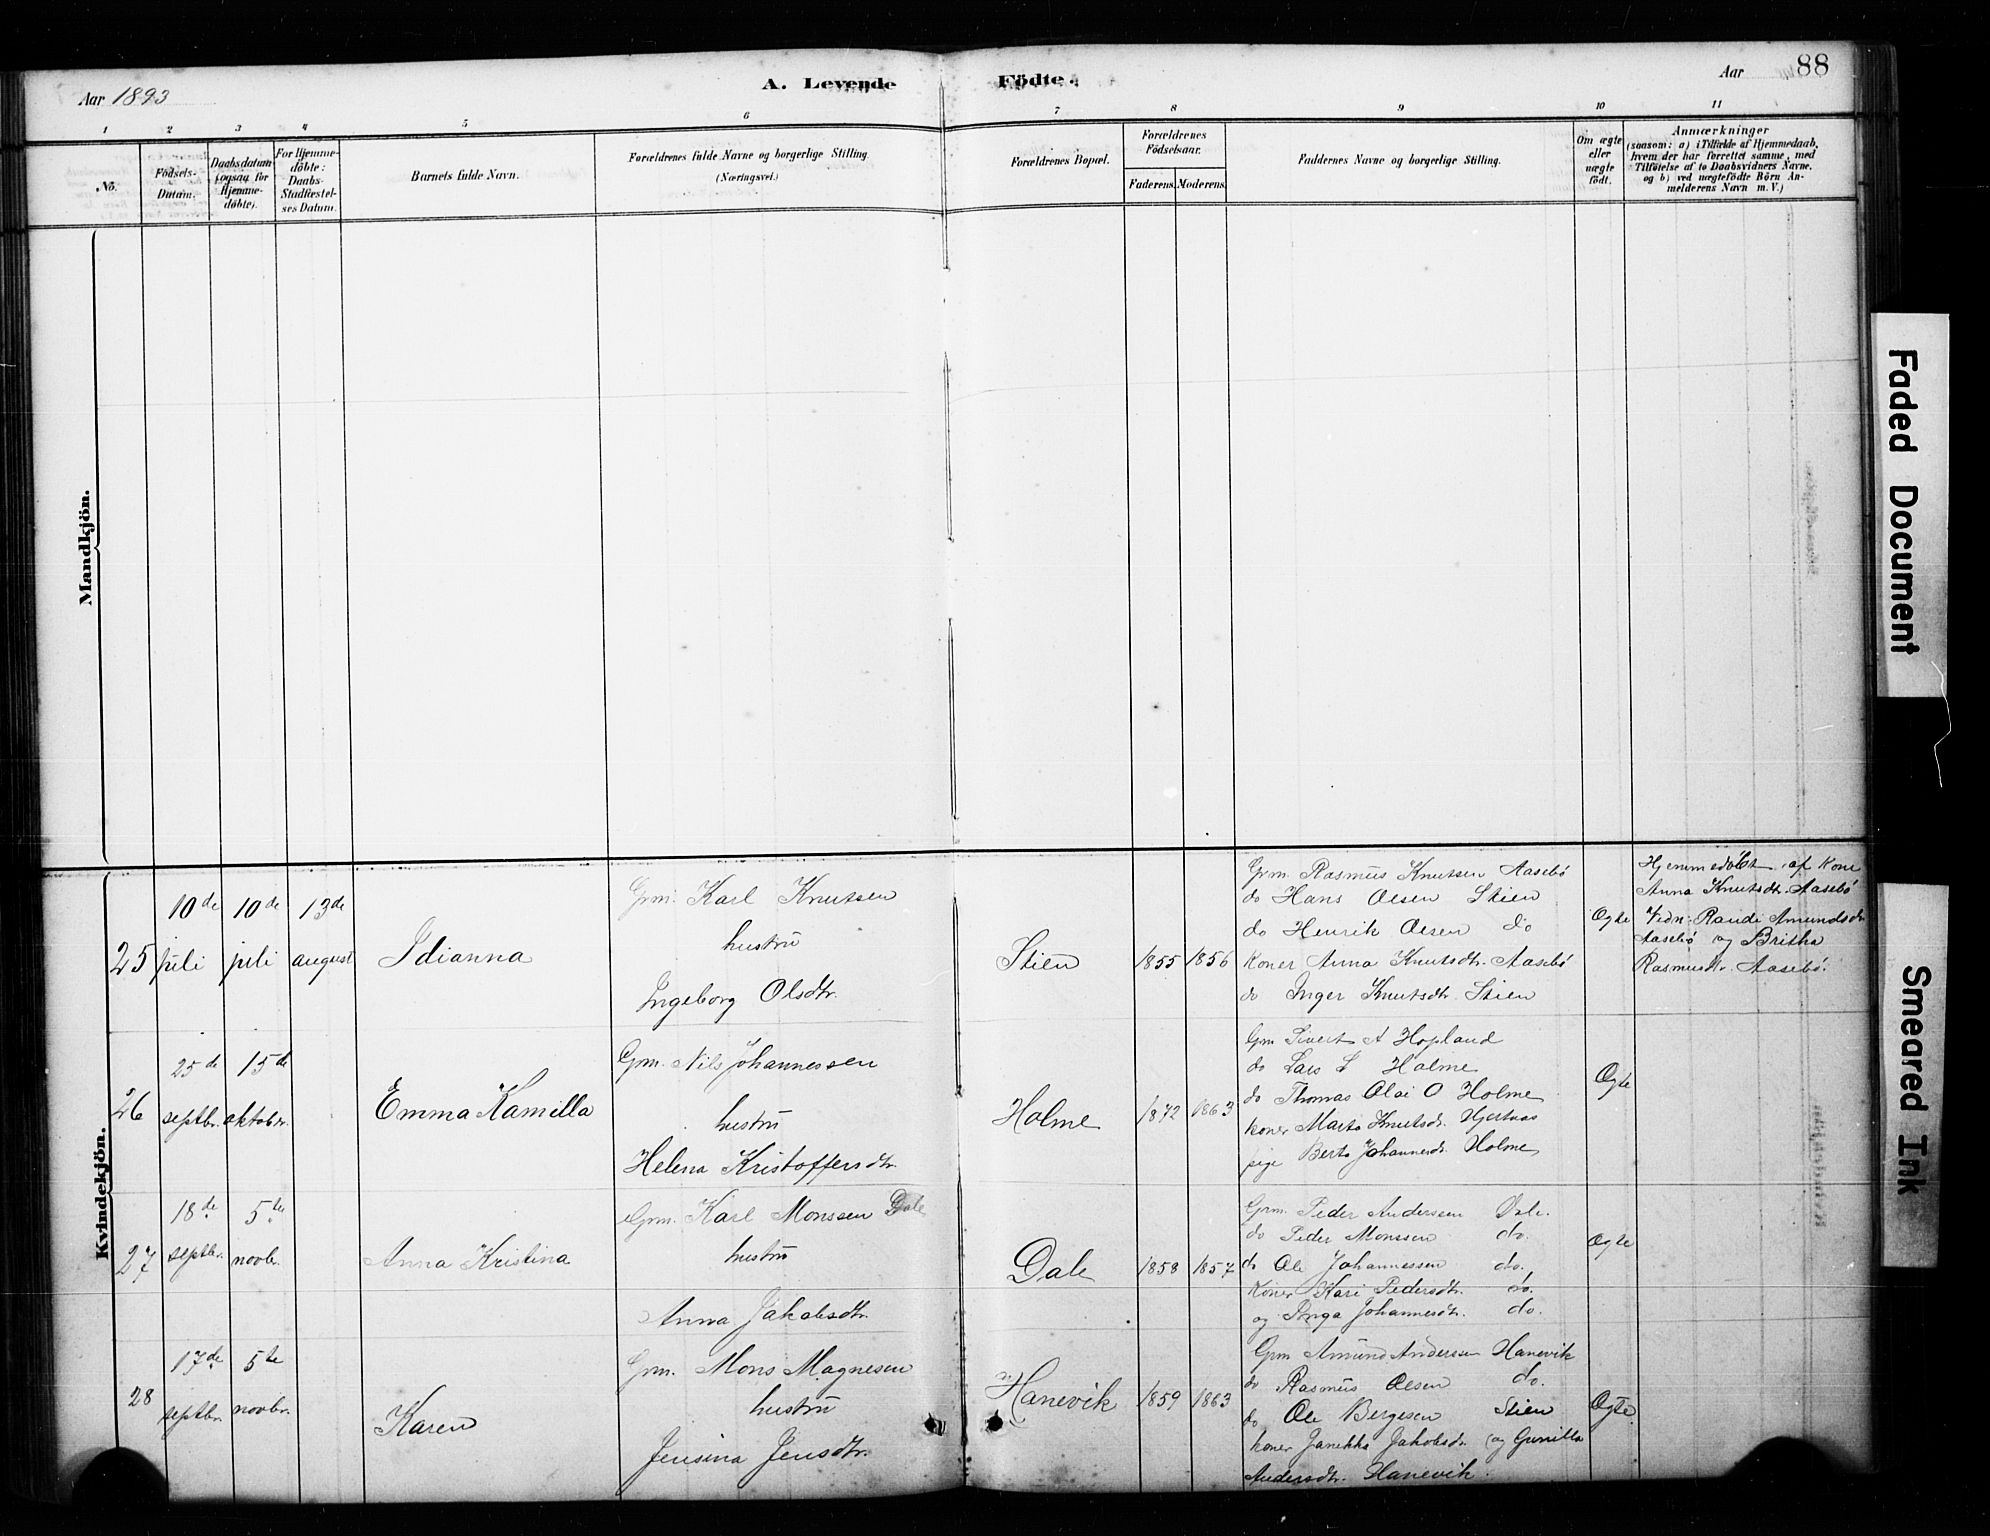 A. Levende Födte.
Aar 1893
Aar
88
1 2 3 4 5 6 7 8 9 10 11
No.
Födsels-Datum.
Daabsdatum (ogsaa for Hjemme-döbte).
For Hjemme-döbte: Daabs-Stadfæstel-ses Datum.
Barnets fulde Navn.
Forældrenes fulde Navne og borgerlige Stilling.
(Næringsvei.)
Forældrenes Bopæl.
Forældrenes Födselsaar.
Faderens. Moderens.
Faddernes Navne og borgerlige Stilling.
Om ægte eller uægte födt.
Anmærkninger
(saasom: a) i Tilfælde af Hjemmedaab,
hvem der har forrettet samme, med
Tilföielse af to Daabsvidners Navne,
og b) ved uægtefödte Börn An-
melderens Navn m. V.)
Mandkjön.
Kvindekjön.
25
10de juli
10de juli
13de august
Idianna
Grm. Karl Knutsen
hustru
Ingeborg Olsdtr.
Stien
1855
1856
Grm. Rasmus Knutsen Aasebö
do Hans Olsen Stien
do Henrik Olsen do
Koner Anna Knutsdtr. Aasebö
do Inger Knutsdtr. Stien
Ægte
Hjemmedöbt af Kone
Anna Knutsdtr. Aasebö
Vidn: Randi Amundsdr
Aasebö og Britha
Rasmusdtr. Aasebö.
26
25de septbr.
15de oktobr.
Emma Kamilla
Grm. Nils Johannessen
hustru
Helena Kristoffersdtr.
Holme
1872
1863
Grm Sivert A Hopland
do Lars L Holme
do Thomas Olai O Holme
koner Marta Knutsdr. Hjertnas
pige Berta Johannesdr. Holme
Ægte
27
18de septbr.
5te novbr.
Anna Kristina
Grm. Karl Monssen Dale
hustru
Anna Jakobsdtr.
Dale
1858
1857
Grm. Peder Andersen Dale.
do Peder Monssen do.
do Ole Johannessen do.
Koner Kari Pedersdtr. do.
og Inga Johannesdtr. do.
Ægte
28
17de septbr.
5te novbr.
Karen
Grm. Mons Magnesen
hustru
Jensina Jensdtr.
Hanevik
1859
1863
Grm Amund Andersen Hanevik
do Rasmus Olsen do.
do Ole Bergesen Stien
koner Janikka Jakobsdr. og Gunilla
Andersdtr. Hanevik.
Ægte.
Faded Document
Smeared Ink